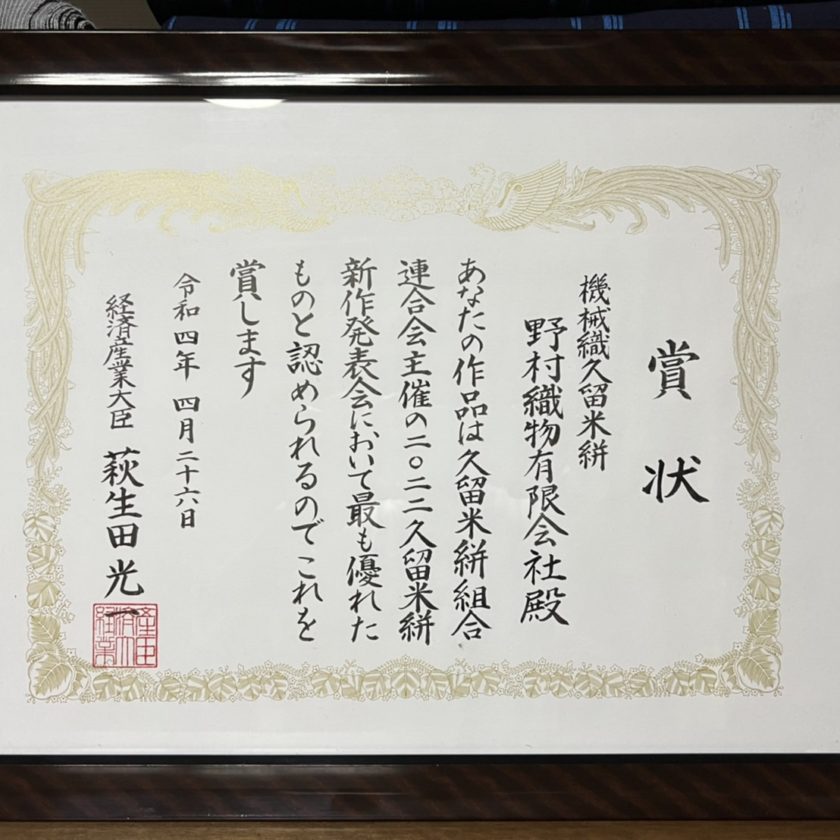 賞状
機械織久留米絣
野村織物有限会社殿
あなたの作品は久留米絣組合
連合会主催の二〇二二久留米絣
新作発表会において最も優れた
ものと認められるのでこれを
賞します
令和四年四月二十六日
経済産業大臣 萩生田光一